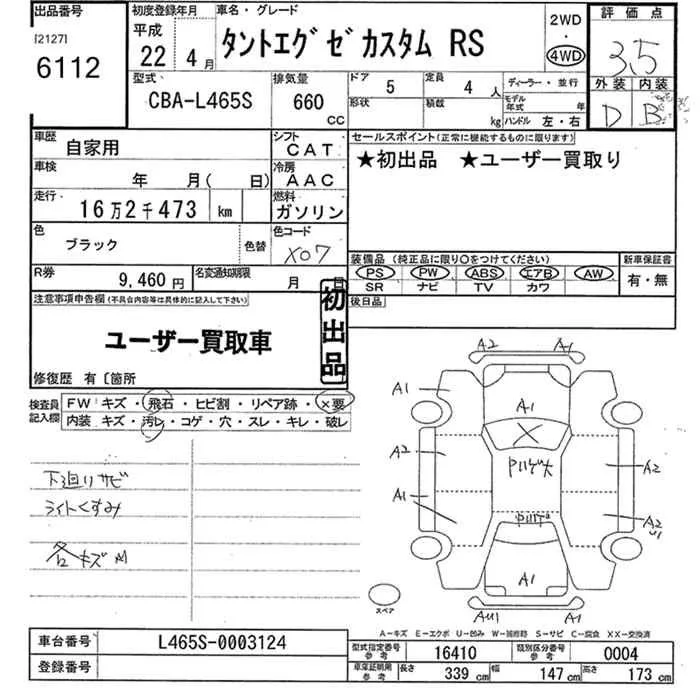 出品番号 初度登録年月 車名・グレード 2WD ・ 4WD 評価点
[2127] 6112 平成 22年 4月 タントエグゼカスタム RS 3.5
型式 CBA-L465S 排気量 660 CC ドア 5 定員 4人 ディーラー・並行 外装 D 内装 B
形状 積載 kg モデル年式 年 ハンドル 左・右
車歴 自家用 シフト CAT セールスポイント(正常に機能するものに限ります)
車検 年 月( 日) 冷房 AAC ★初出品 ★ユーザー買取り
走行 16万2千473 km 燃料 ガソリン
色 ブラック 色替 色コード X07
装備品(純正品に限り○をつけてください) 新車保証書
R券 9,460円 名変通知期限 月 日 PS PW ABS エアB AW 有・無
SR ナビ TV カワ
注意事項申告欄(不具合内容等は具体的に記入して下さい) 初出品 後日品
ユーザー買取車
修復歴 有〔箇所
検査員記入欄 FW キズ・飛石・ヒビ割・リペア跡・×要
内装 キズ・汚レ・コゲ・穴・スレ・キレ・破レ
下廻りサビ
ライトくすみ
各キズM
A2 A1
A1 A1
X
A2 A2
A1 A2
U1
A1
AU1 A1
スペア
A-キズ E-エクボ U-凹み W-補修跡 S-サビ C-腐食 XX-交換済
車台番号 L465S-0003124 型式指定番号 参考 16410 類別区分番号 参考 0004
登録番号 車庫証明用 参考 長さ 339 cm 幅 147 cm 高さ 173 cm